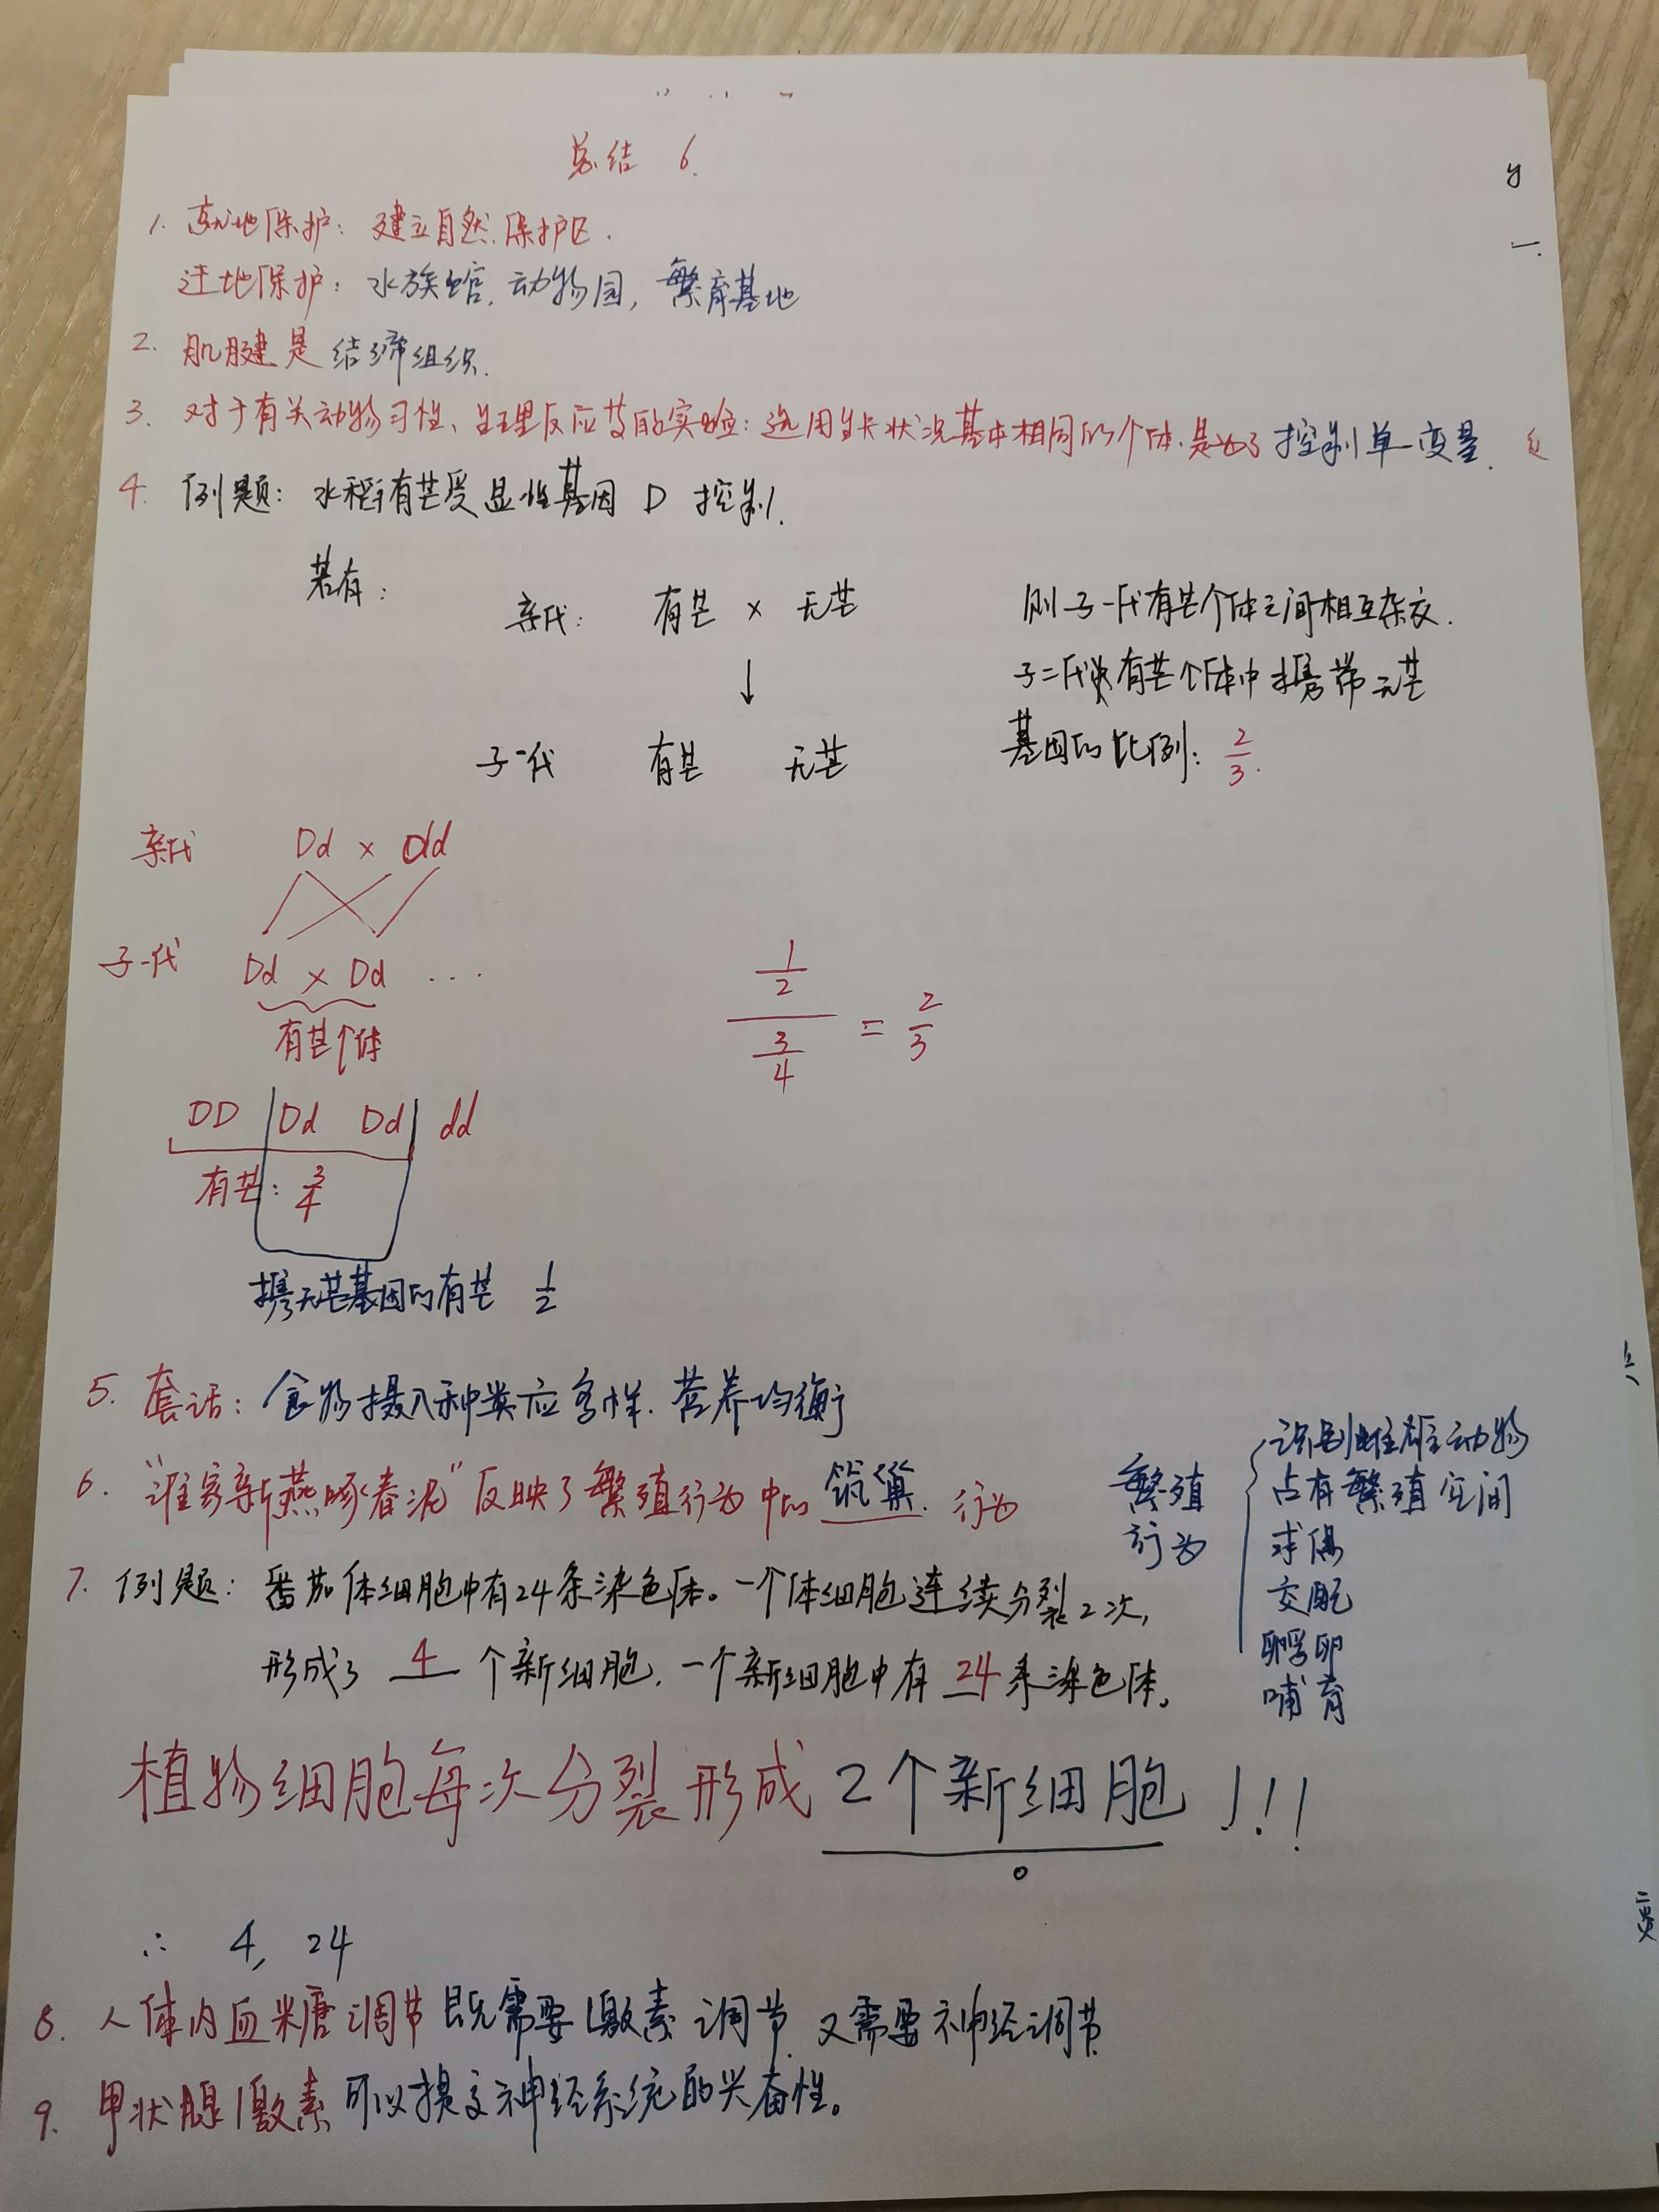 总结 6.
1. 就地保护：建立自然保护区.
迁地保护：水族馆, 动物园, 繁育基地
2. 肌腱是结缔组织.
3. 对于有关动物习性、生理反应等的实验：选用生长状况基本相同的个体.是为了控制单一变量.
4. 例题：水稻有芒受显性基因 D 控制.
若有：
亲代： 有芒 × 无芒
↓
子一代 有芒 无芒
则子一代有芒个体之间相互杂交.
子二代有芒个体中携带无芒
基因的比例：2/3.
亲代 Dd × dd
子一代 Dd × Dd ...
有芒个体
1/2 / 3/4 = 2/3
DD Dd Dd dd
有芒：3/4
携无芒基因的有芒 1/2
5. 套话：食物摄入种类应多样. 营养均衡
6. "谁家新燕啄春泥"反映了繁殖行为中的筑巢.行为
繁殖
行为
识别雌雄动物
占有繁殖空间
求偶
交配
孵卵
哺育
7. 例题：番茄体细胞中有24条染色体。一个体细胞连续分裂2次,
形成了 4 个新细胞. 一个新细胞中有 24 条染色体。
植物细胞每次分裂形成2个新细胞!!!
∴ 4, 24
8. 人体内血糖调节既需要激素调节, 又需要神经调节
9. 甲状腺激素可以提高神经系统的兴奋性。